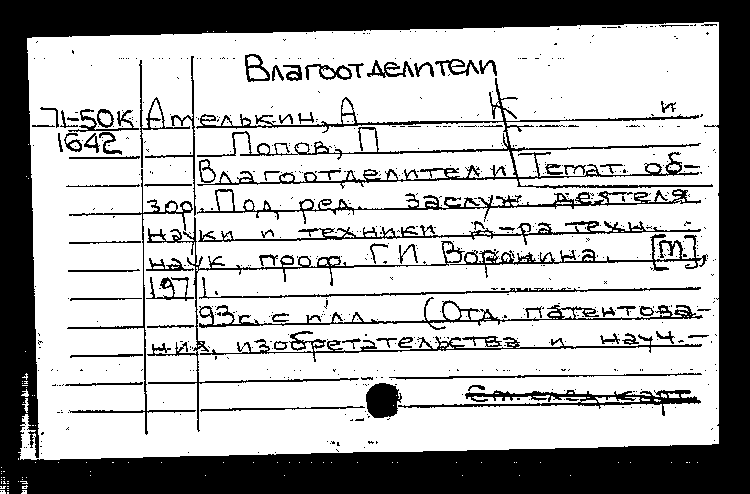 Влагоотделители
71-50К Амелькин, А К и
1642 Попов, П С
Влагоотделители Темат. об-
зор. Под ред. заслуж деятеля
науки и техники д-ра техн. -
наук, проф. Г.И. Воронина. [М.],
1971.
93с. с илл. (Отд. патентова-
ния, изобретательства и науч.-
См. след. карт.